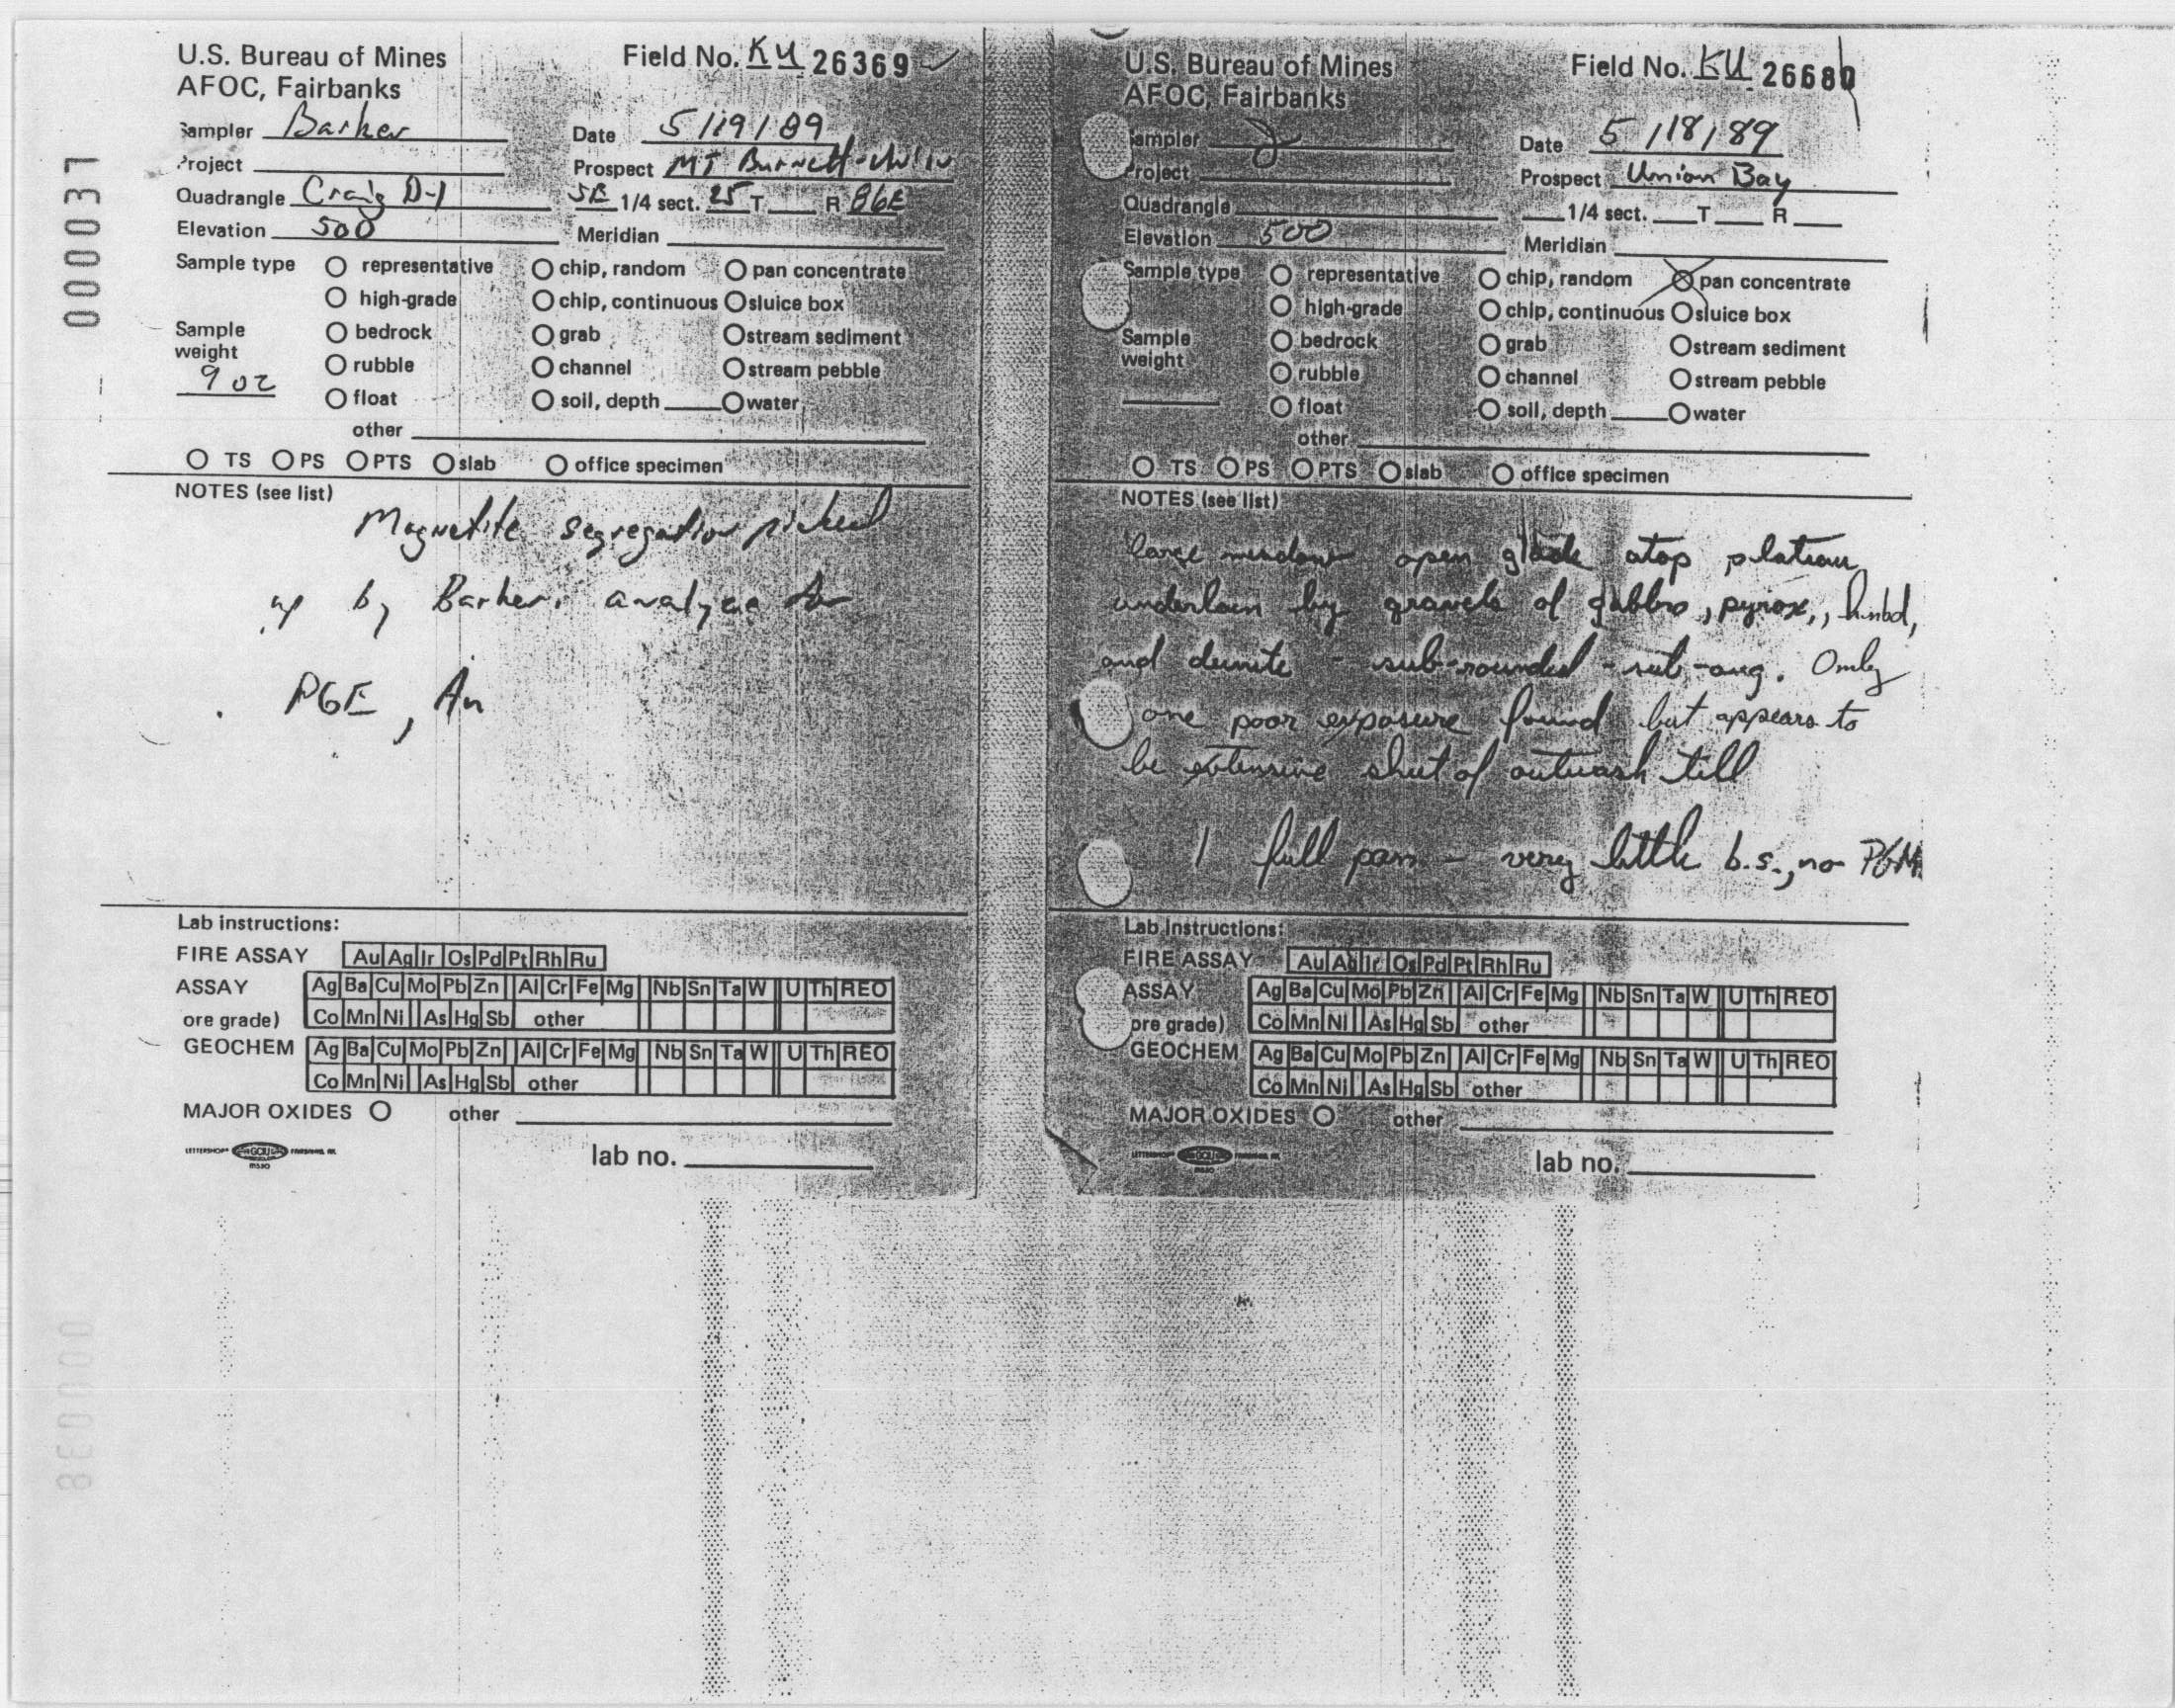 000037
U.S. Bureau of Mines
AFOC, Fairbanks
Field No. KU 26369
Sampler Barker
Date 5/19/89
Project
Prospect MT Burnett
Quadrangle Craig D-1
SE 1/4 sect. 25 T R 86E
Elevation 500
Meridian
Sample type O representative O chip, random O pan concentrate
O high-grade O chip, continuous O sluice box
Sample weight O bedrock O grab O stream sediment
9 oz O rubble O channel O stream pebble
O float O soil, depth O water
other
O TS O PS O PTS O slab O office specimen
NOTES (see list)
Magnetite segregation picked
up by Barker. analyze for
PGE, Au
Lab instructions:
FIRE ASSAY Au Ag Ir Os Pd Pt Rh Ru
ASSAY Ag Ba Cu Mo Pb Zn Al Cr Fe Mg Nb Sn Ta W U Th REO
ore grade) Co Mn Ni As Hg Sb other
GEOCHEM Ag Ba Cu Mo Pb Zn Al Cr Fe Mg Nb Sn Ta W U Th REO
Co Mn Ni As Hg Sb other
MAJOR OXIDES O other
lab no.
U.S. Bureau of Mines
AFOC, Fairbanks
Field No. KU 26680
Sampler
Date 5/18/89
Project
Prospect Union Bay
Quadrangle
1/4 sect. T R
Elevation 500
Meridian
Sample type O representative O chip, random O pan concentrate
O high-grade O chip, continuous O sluice box
Sample weight O bedrock O grab O stream sediment
O rubble O channel O stream pebble
O float O soil, depth O water
other
O TS O PS O PTS O slab O office specimen
NOTES (see list)
large meadow open glade atop plateau
underlain by gravels of gabbro, pyrox., hnbd,
and dunite - sub-rounded - sub-ang. Only
one poor exposure found but appears to
be extensive sheet of outwash till
1 full pan - very little b.s., no PGM
Lab Instructions:
FIRE ASSAY Au Ag Ir Os Pd Pt Rh Ru
ASSAY Ag Ba Cu Mo Pb Zn Al Cr Fe Mg Nb Sn Ta W U Th REO
ore grade) Co Mn Ni As Hg Sb other
GEOCHEM Ag Ba Cu Mo Pb Zn Al Cr Fe Mg Nb Sn Ta W U Th REO
Co Mn Ni As Hg Sb other
MAJOR OXIDES O other
lab no.
000038